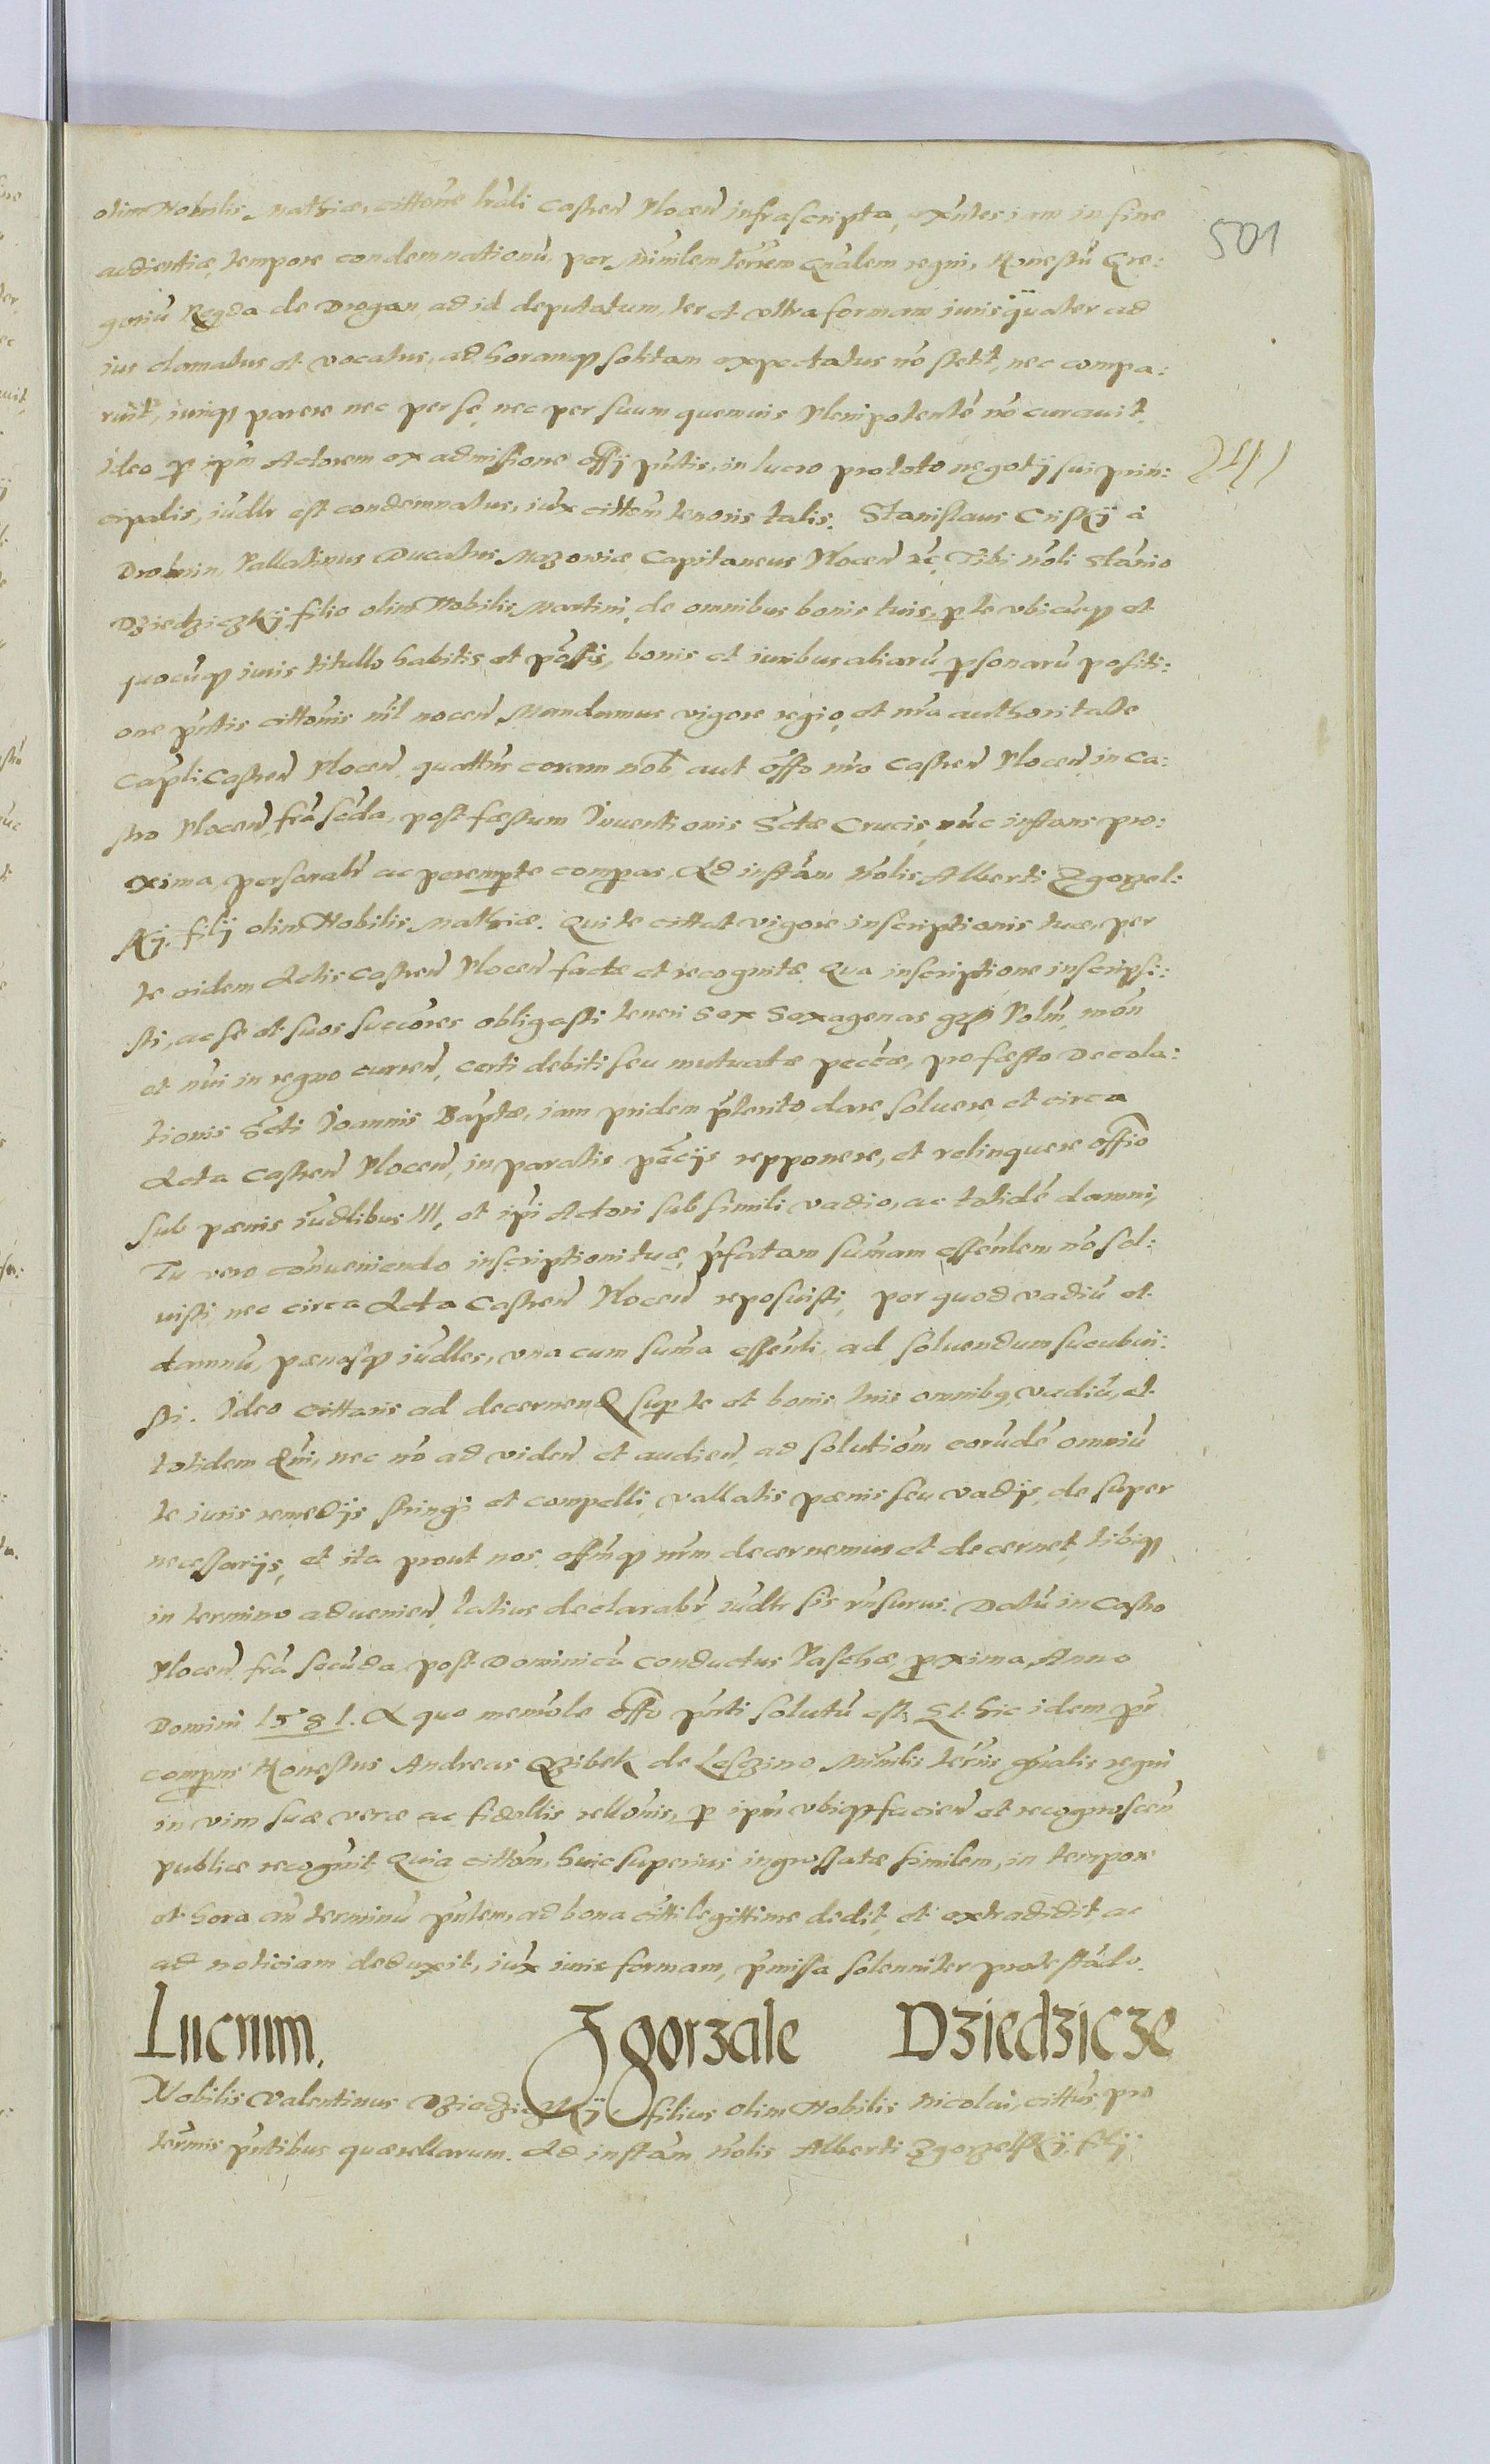 501
olim Nobilis Mathiæ, cittõne lrãli Castren̄ Plocen̄ infrascripta, exn̄tes iam in fine
audientiæ, tempore condemnationũ, per Ministerialem terrem Gnãlem regni, Honestũ Gre:
goriũ Regda de Drogan, ad id deputatum, ter et vltra formam iuris quater ad
ius clamatus et vocatus, ad horamq solitam expectatus nõ stetit, nec compa:
ruit, iuriq parere nec per se, nec per suum quemuis Plenipotentẽ nõ curauit.
Ideo p ipm̄ Actorem ex admissione offij pn̄tis, in lucro pro toto negotij sui prin:
cipalis, iudlr est condemnatus, iux cittõm tenoris talis. Stanislaus Criskij à
Drobnin, Pallatinus Ducatus Mazowiæ Capitaneus Plocen̄ &c, Tibi nõli Stãnio
Dziedziczkij, filio olim Nobilis Martini, de omnibus bonis tuis, p te vbicũq et
quocũq iuris titullo habitis et põssis, bonis et iuribus aliarũ psonarũ positi:
one pn̄tis cittõnis nĩl nocen̄ Mandamus vigore regio, et nr̃a authoritate
Capĩli, Castren̄ Plocen̄, quattñs coram nob̃, aut offo nr̃o Castren̄ Plocen̄, in Ca:
stro Plocen̄, frã scd̃a, post fæstum Inuentionis Sctæ Crucis, nũc instans pro:
xima, personalr̃ ac perempte compas, Ad instãm Nõlis Alberti Zgorzel:
skij, filij olim Nobilis Mathiæ. Qui te cittat vigore inscriptionis tuæ, per
te eidem Actis Castren̄ Plocen̄ factæ et recognitæ. Qua inscriptione inscripsi:
sti, ac se et suos succõres obligasti teneri sex sexagenas grõ Polñ, mõn
et nũi in regno curren̄, certi debiti seu mutuatæ peccæ, pro fæsto Decola:
tionis Scti Joannis Baptæ, iam pridem pr̃terito, dare, soluere, et circa
Acta Castren̄ Plocen̄, in paratis pẽcijs repponere, et relinquere offio
sub pænis iũdlibus III, et ip̃i Actori sub simili vadio, ac totidẽ damni,
Tu vero conueniendo inscriptioni tuæ, pr̃fatam sum̃am essẽnlem nõ sol:
uisti, nec circa Acta Castren̄ Plocen̄ reposuisti, per quod vadiũ et
damnũ, pænasq iudles, vna cum sum̃a essẽnli, ad soluendum sucubui:
sti. Ideo cittaris ad decernend super te et bonis tuis omnibq, vadiũ, et
totidem dñi, nec nõ ad viden̄ et audien̄, ad solutiõm corũdẽ omniũ
te iuris remedijs stringi et compelli, vallatis pænis seu vadijs, de super
necessarijs, et ita prout nos, offmq nr̃m, decernemus et decernet, tibiq
in termino aduenien̄, latius declarabr̃, iudlr sis rñsurus. Datũ in Castro
Plocen̄, frã secũda, post Dominicã Conductus Paschæ, pxima, Anno
Domini 1581. A quo memõle offo pñti solutũ est, Et hic idem pr̃
compns Honestus Andreas Dzibek de Leszino, Mĩnlis terr̃is gñalis regni
in vim suæ veræ ac fidellis rellõnis, p ipm̄ vbiq facien̄ et recognoscen̄
publicæ recognuit. Quia cittõm, huic superius ingrossatæ similem, in tempore
et hora an̄ terminũ pñtem, ad bona citti legittime dedit, et extradidit ac
ad noticiam deduxit, iux iuris formam, pr̃missa solenniter protestãdo.
Lucrum. Zgorzale Dziedzicze
Nobilis Valentinus Dziedziczkij, filius olim Nobilis Nicolai, cittũs pro
terr̃mis pñtibus quærellarum. Ad instãm Nõlis Alberti Zgorzelskij, filij